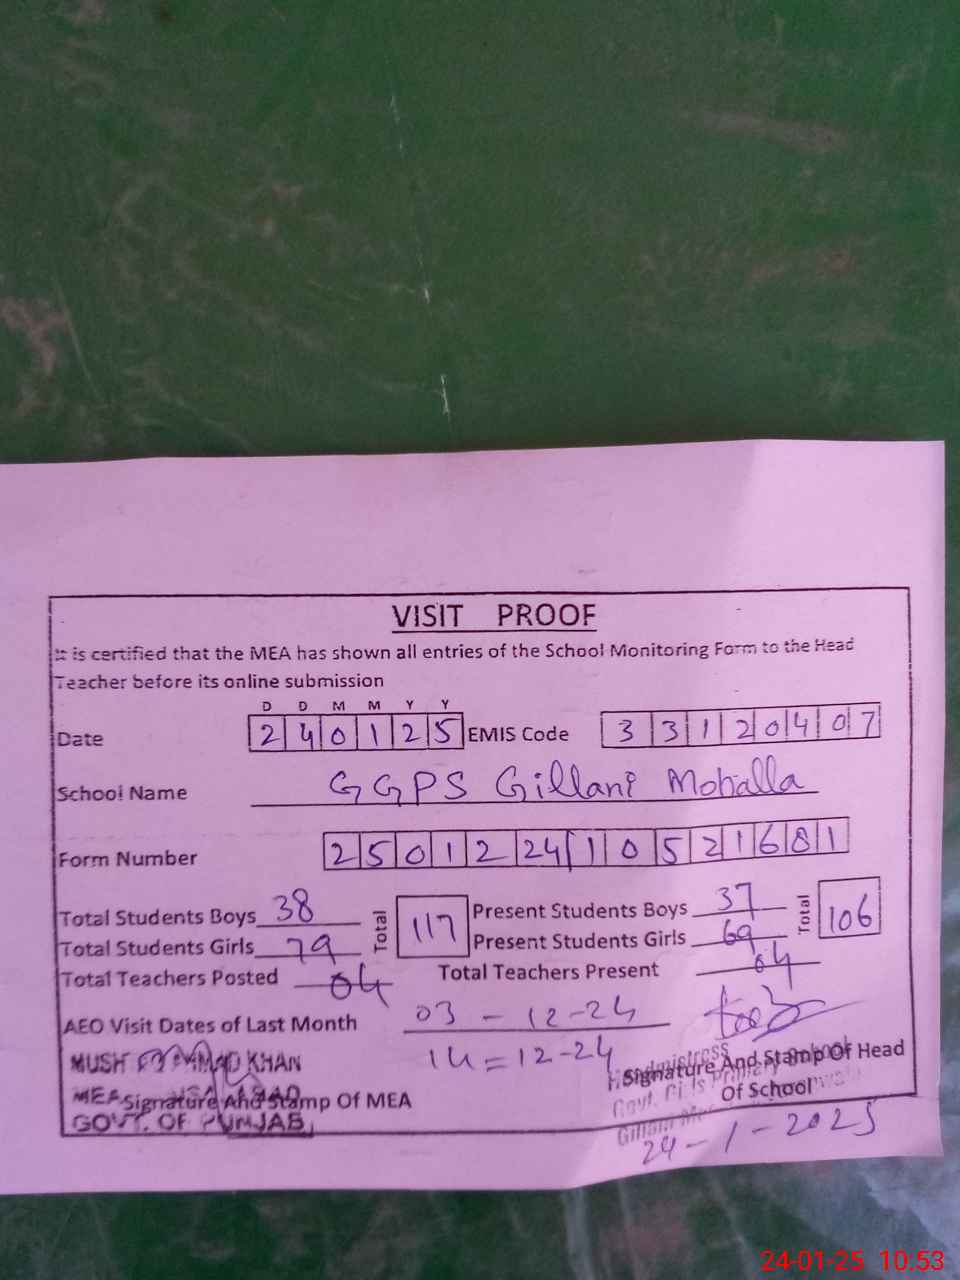 VISIT PROOF
It is certified that the MEA has shown all entries of the School Monitoring Form to the Head
Teacher before its online submission
D D M M Y Y
Date 2 4 0 1 2 5 EMIS Code 3 3 1 2 0 4 0 7
School Name GGPS Gillani Mohalla
Form Number 2 5 0 1 2 24 1 0 5 2 1 6 8 1
Total Students Boys 38 Total 117 Present Students Boys 37 Total 106
Total Students Girls 79 Present Students Girls 69
Total Teachers Posted 04 Total Teachers Present 04
AEO Visit Dates of Last Month 03-12-24
14=12-24
MUSH KHAN
MEA
Signature And Stamp Of MEA
GOVT. OF PUNJAB
Headmistress
Signature And Stamp Of Head
Of School
Govt. Girls Primary School
Gillani
24-1-2025
24-01-25 10.53